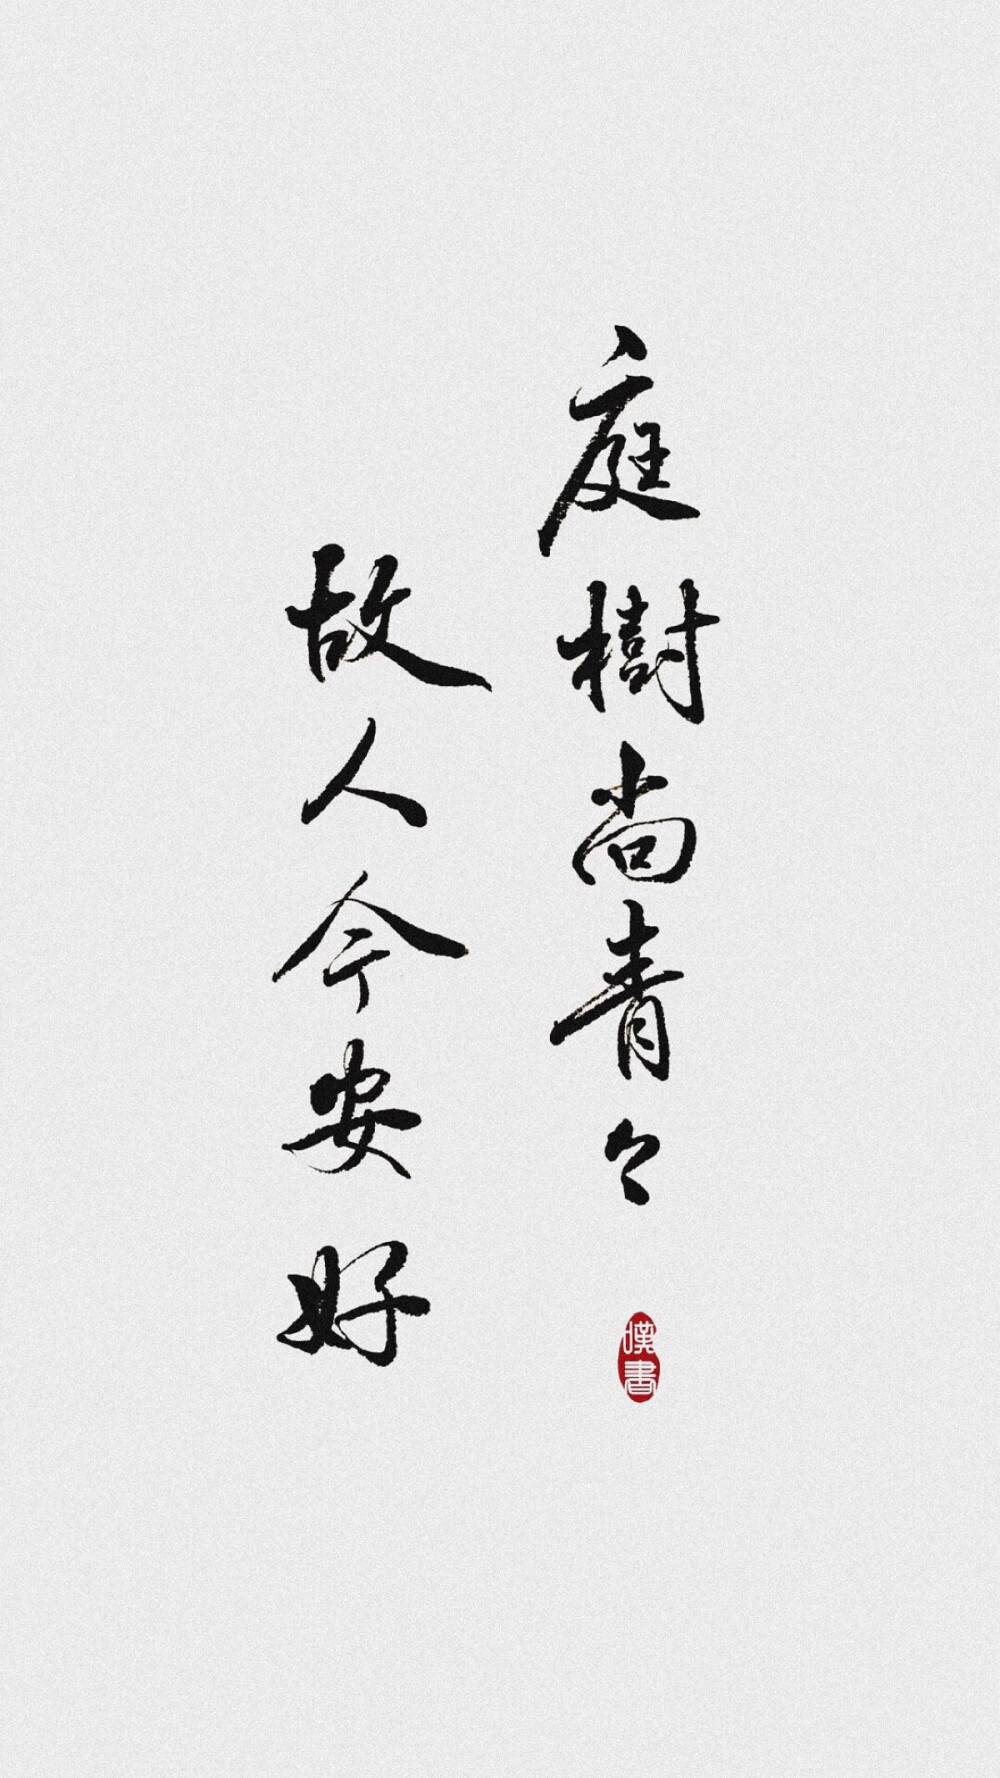 庭樹尚青々
故人今安好
嘆書